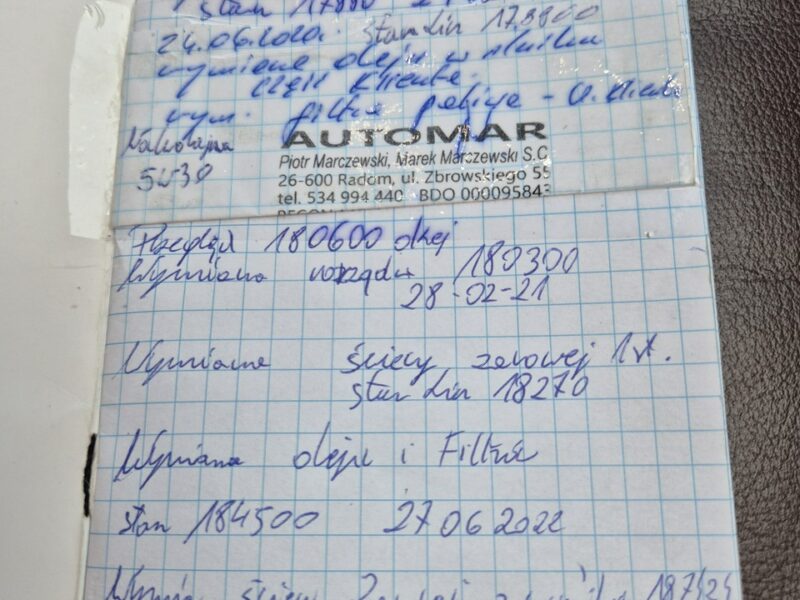 stan
24.06.2020r. stan lin 178800
wymiana oleju w silniku
części klienta.
wym. filtra paliwa -
5W30
AUTOMAR
Piotr Marczewski, Marek Marczewski S.C
26-600 Radom, ul. Zbrowskiego 55
tel. 534 994 440 BDO 000095843
Przegląd 180600 olej
Wymiana rozrządu 180300
28-02-21
Wymiana świecy żarowej 1szt.
stan lin 18270
Wymiana oleju i Filtra
stan 184500 27 06 2022
świecy